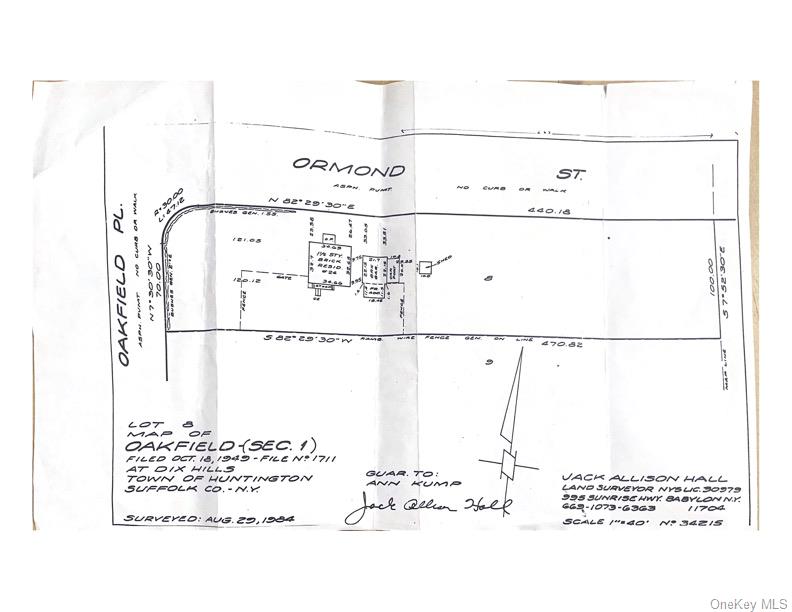 ORMOND ST.
ASPH. PVMT. NO CURB OR WALK
N 82° 29' 30" E 440.18
R=30.00
L=47.12
BUSHES GEN. 1.5 S.
OAKFIELD PL.
ASPH. PVMT NO CURB OR WALK
N 7° 30' 30" W
70.00
121.05
120.12
GATE
FENCE
1½ STY.
BRICK
RESID
#26
34.66
SHED
FENCE
8
100.00
S 7° 52' 30 E
MAP LINE
S 82° 29' 30" W RAMB. WIRE FENCE GEN. ON LINE 470.82
9
LOT 8
MAP OF
OAKFIELD-(SEC. 1)
FILED OCT. 18, 1949 - FILE Nº 1711
AT DIX HILLS
TOWN OF HUNTINGTON
SUFFOLK CO. - N.Y.
SURVEYED: AUG. 29, 1984
GUAR. TO:
ANN KUMP
Jack Allison Hall
JACK ALLISON HALL
LAND SURVEYOR NYS LIC. 30979
995 SUNRISE HWY. BABYLON N.Y.
669-1073-6363 11704
SCALE 1"=40' Nº 34215
OneKey MLS